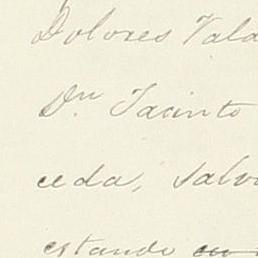 Dolores Vala
Dn Jacinto
ceda, salv
estando